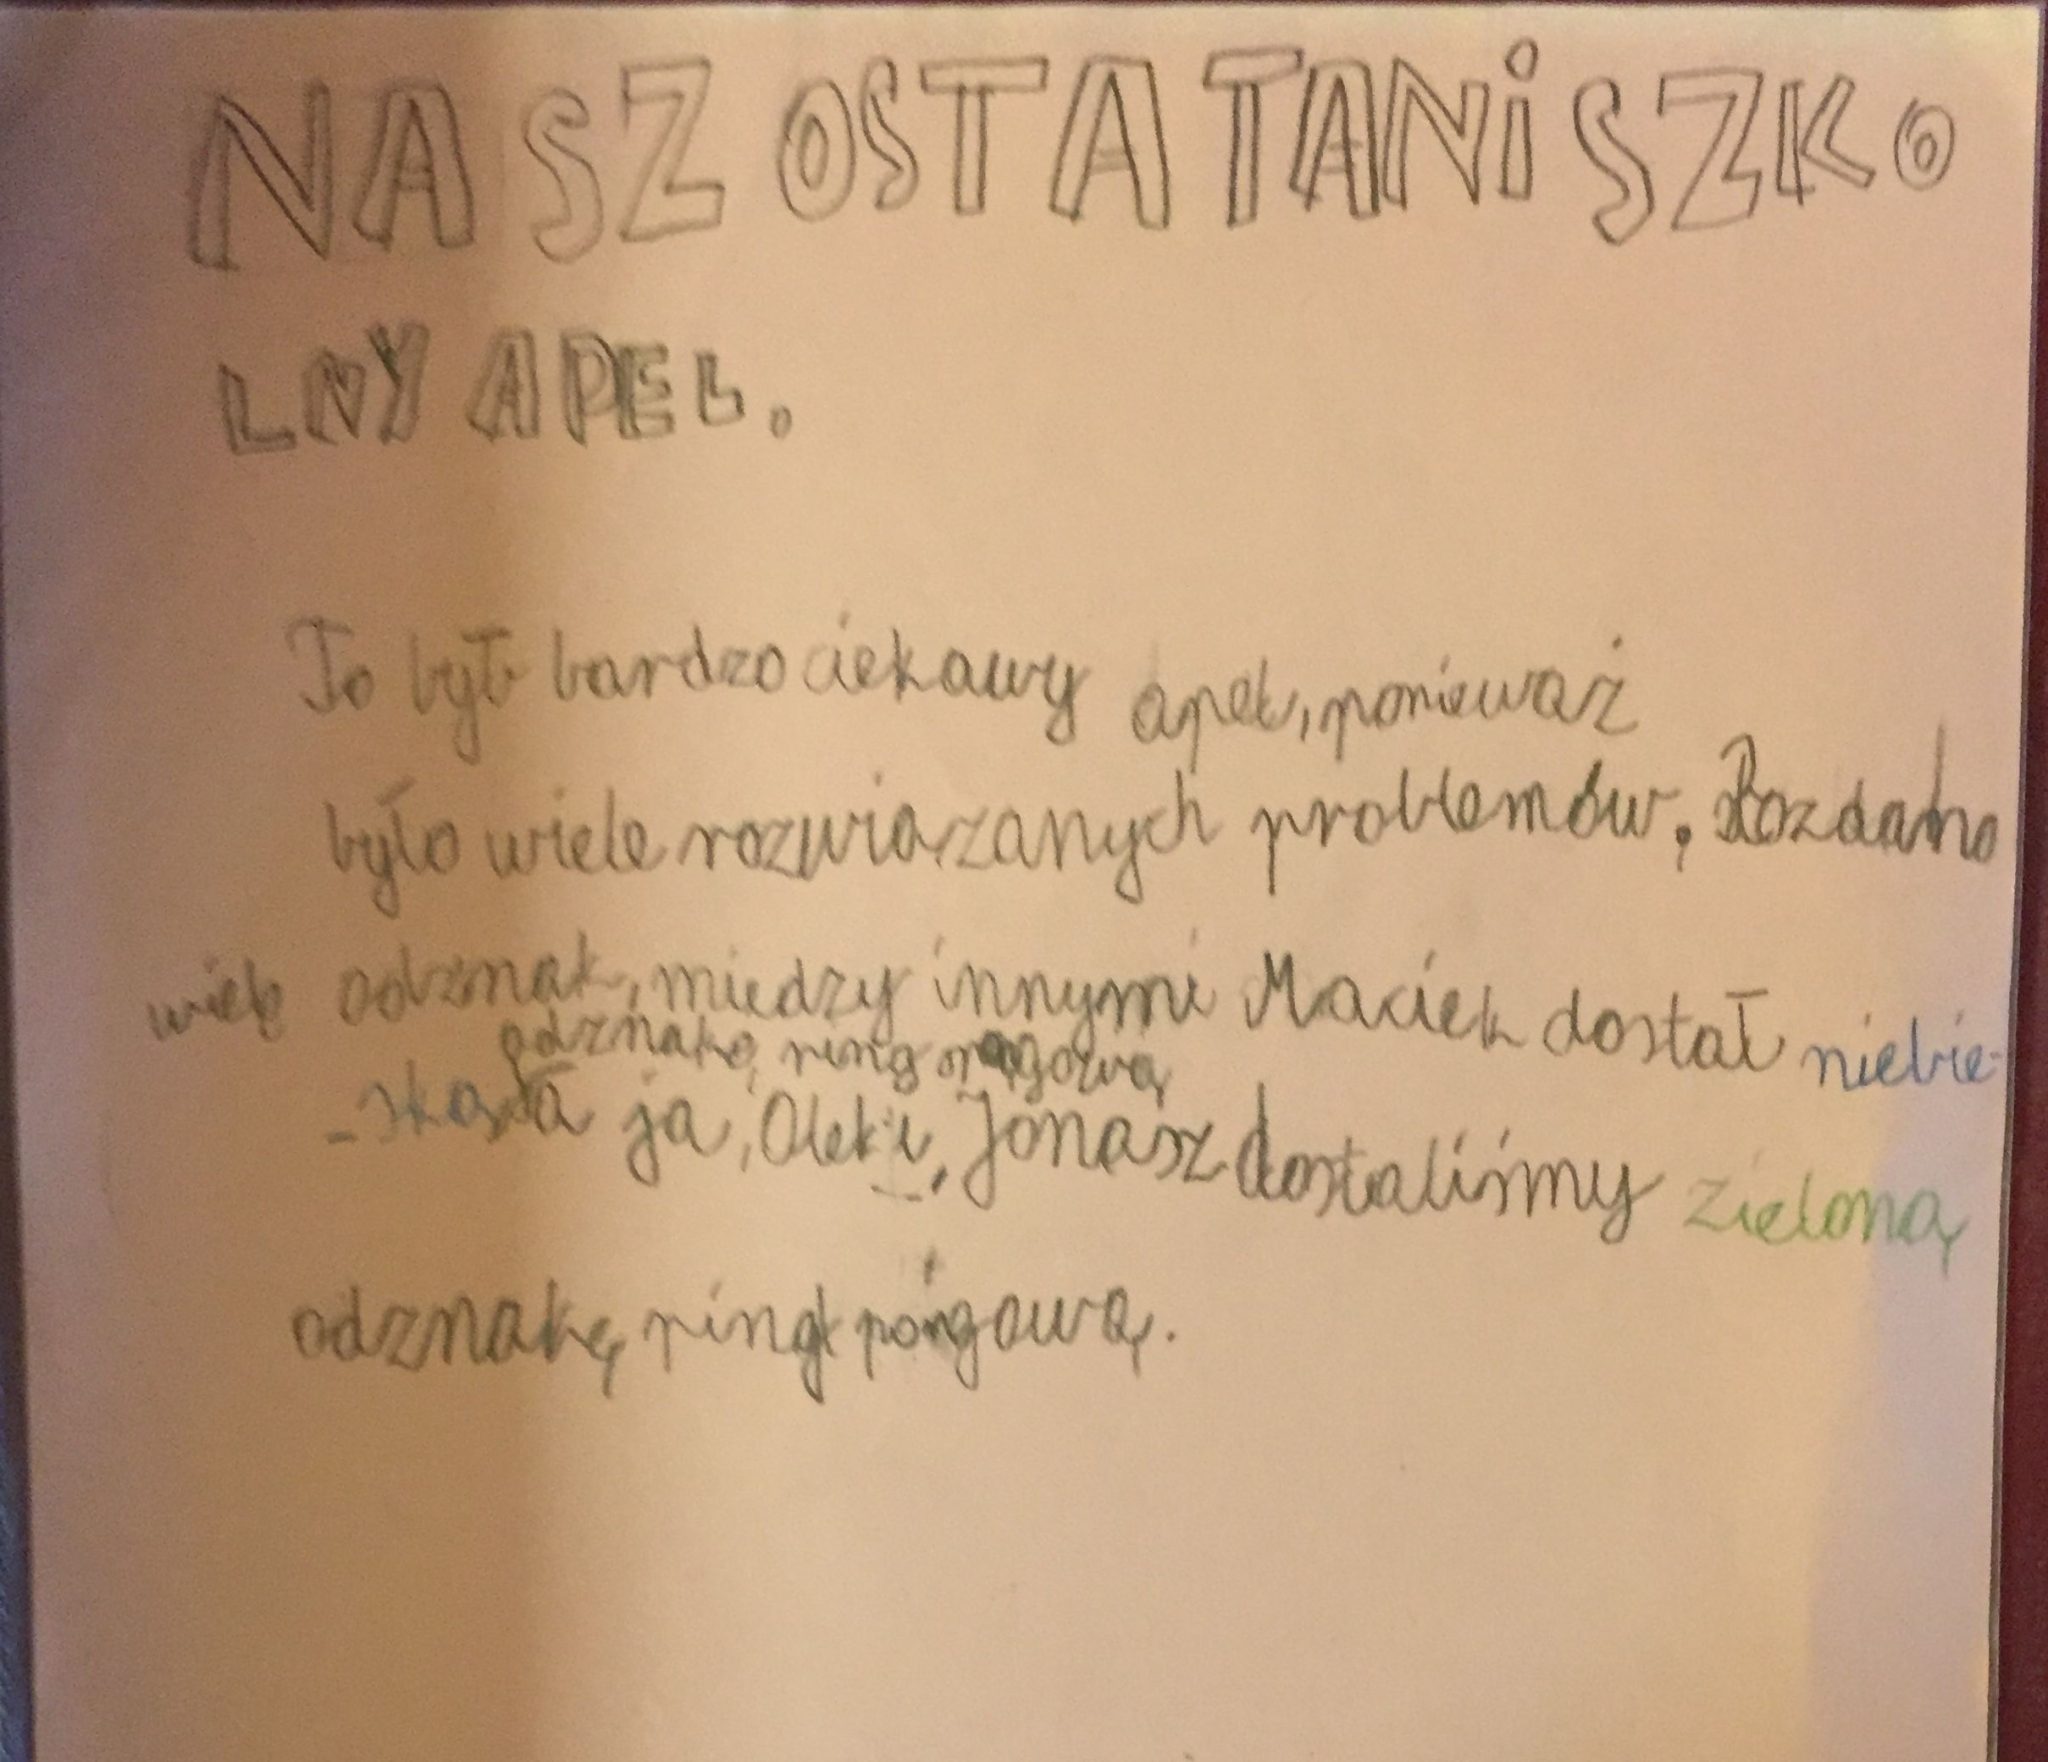 NASZ OSTATANiSZKO
LNY APEL.
To był bardzo ciekawy apel, ponieważ
było wiele rozwiązanych problemów. Rozdano
wiele odznak, między innymi Maciek dostał niebie-
odznakę ring
-ską a ja, Olek i, Jonasz dostaliśmy zieloną
odznakę ring pongową.